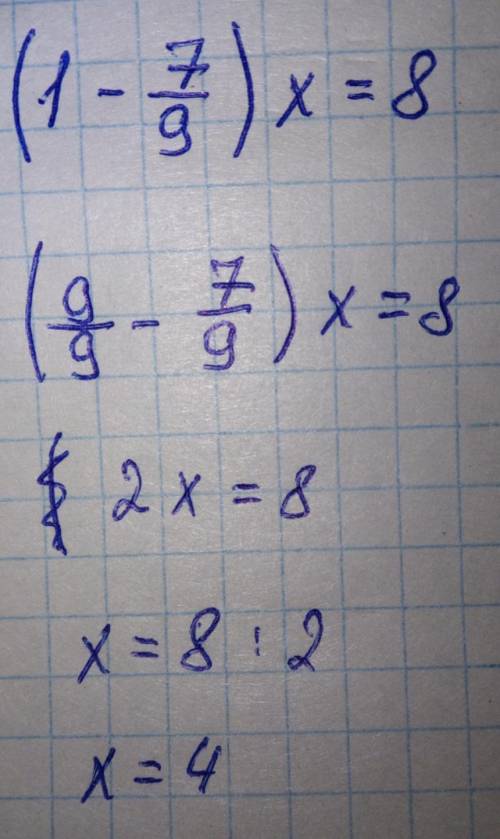 (1 - 7/9) x = 8
(9/9 - 7/9) x = 8
2 x = 8
x = 8 : 2
x = 4